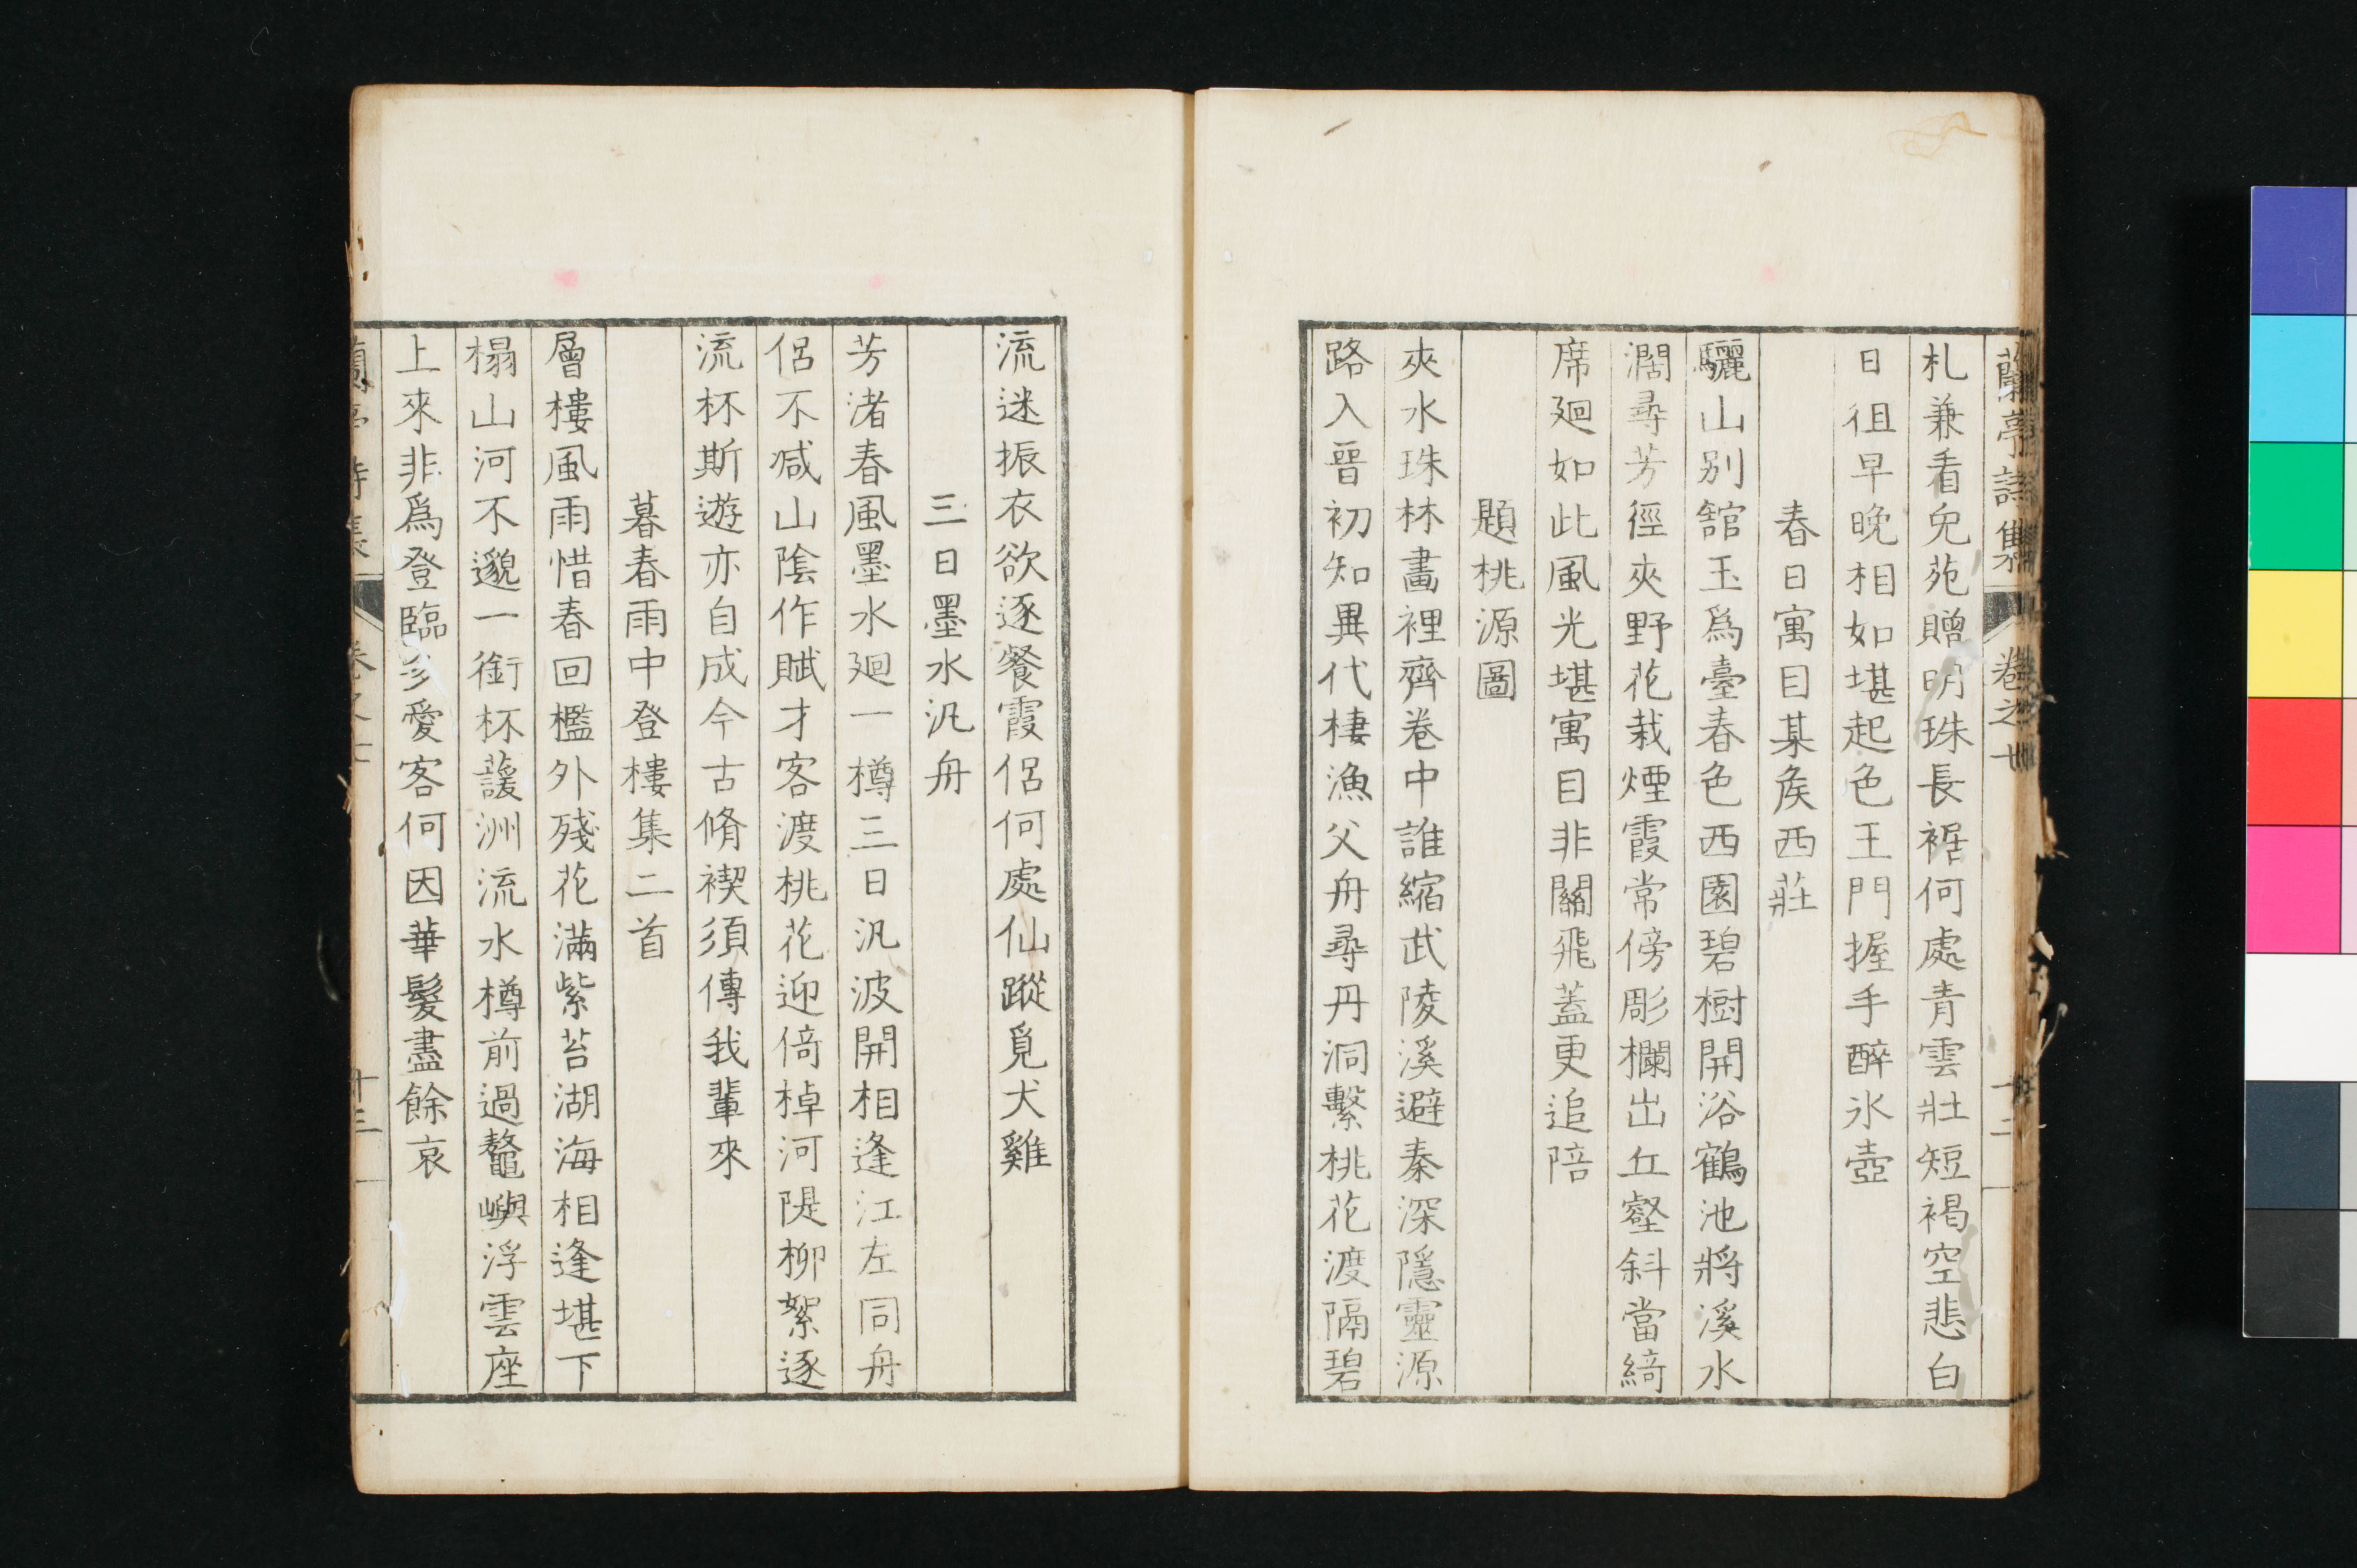 蘭亭詩集 卷之 十二
札兼看兔苑贈明珠長裾何處青雲壯短褐空悲白
日徂早晚相如堪起色王門握手醉氷壺
春日寓目某矦西莊
驪山別館玉爲臺春色西園碧樹開浴鶴池將溪水
濶尋芳徑夾野花栽煙霞常傍彫欄出丘壑斜當綺
席廻如此風光堪寓目非關飛蓋更追陪
題桃源圖
夾水珠林畵裡齊卷中誰縮武陵溪避秦深隱靈源
路入晉初知異代棲漁父舟尋丹洞繫桃花渡隔碧
流迷振衣欲逐餐霞侶何處仙蹤覓犬雞
三日墨水汎舟
芳渚春風墨水廻一樽三日汎波開相逢江左同舟
侶不減山陰作賦才客渡桃花迎倚棹河隄柳絮逐
流杯斯遊亦自成今古脩禊須傳我輩來
暮春雨中登樓集二首
層樓風雨惜春回檻外殘花滿紫苔湖海相逢堪下
榻山河不邈一銜杯薐洲流水樽前過鼇嶼浮雲座
上來非爲登臨多愛客何因華髮盡餘哀
蘭亭詩集 卷之 十三